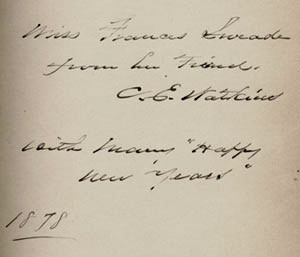 Miss Frances Sneade
from his Friend.
C. E. Watkins
with many "Happy
New Years"
1878